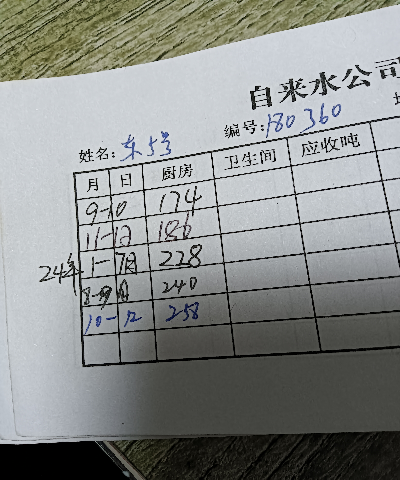 自来水公司
姓名: 东5号 编号: 180360
月 日 厨房 卫生间 应收吨
9-10 174
11-12 186
24年 1-7月 228
8-9月 240
10-12 258